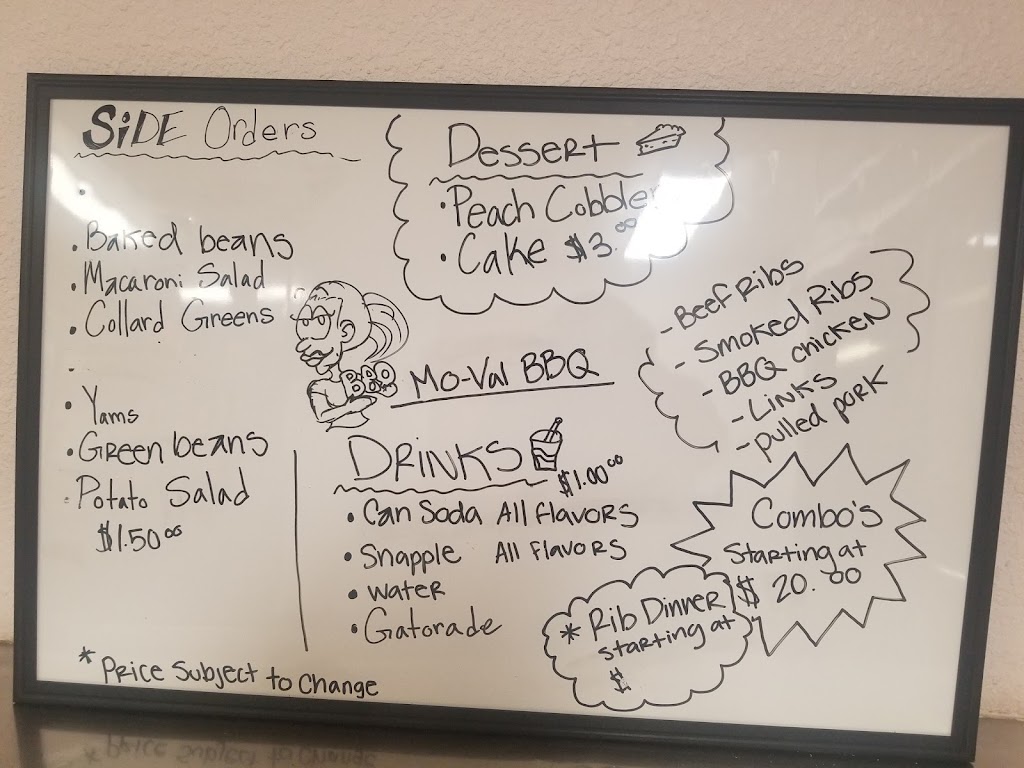 SiDE Orders
• Baked beans
• Macaroni Salad
• Collard Greens
• Yams
• Green beans
• Potato Salad
$1.50⁰⁰
* Price Subject to Change
Dessert
• Peach Cobbler
• Cake $3.⁰⁰
BBQ
Mo-Val BBQ
DRINKS
$1.00⁰⁰
• Can Soda All flavors
• Snapple All flavors
• water
• Gatorade
- Beef Ribs
- Smoked Ribs
- BBQ chicken
- Links
- pulled pork
Combo's
Starting at
$ 20.⁰⁰
* Rib Dinner
starting at
$
* Price Subject to Change